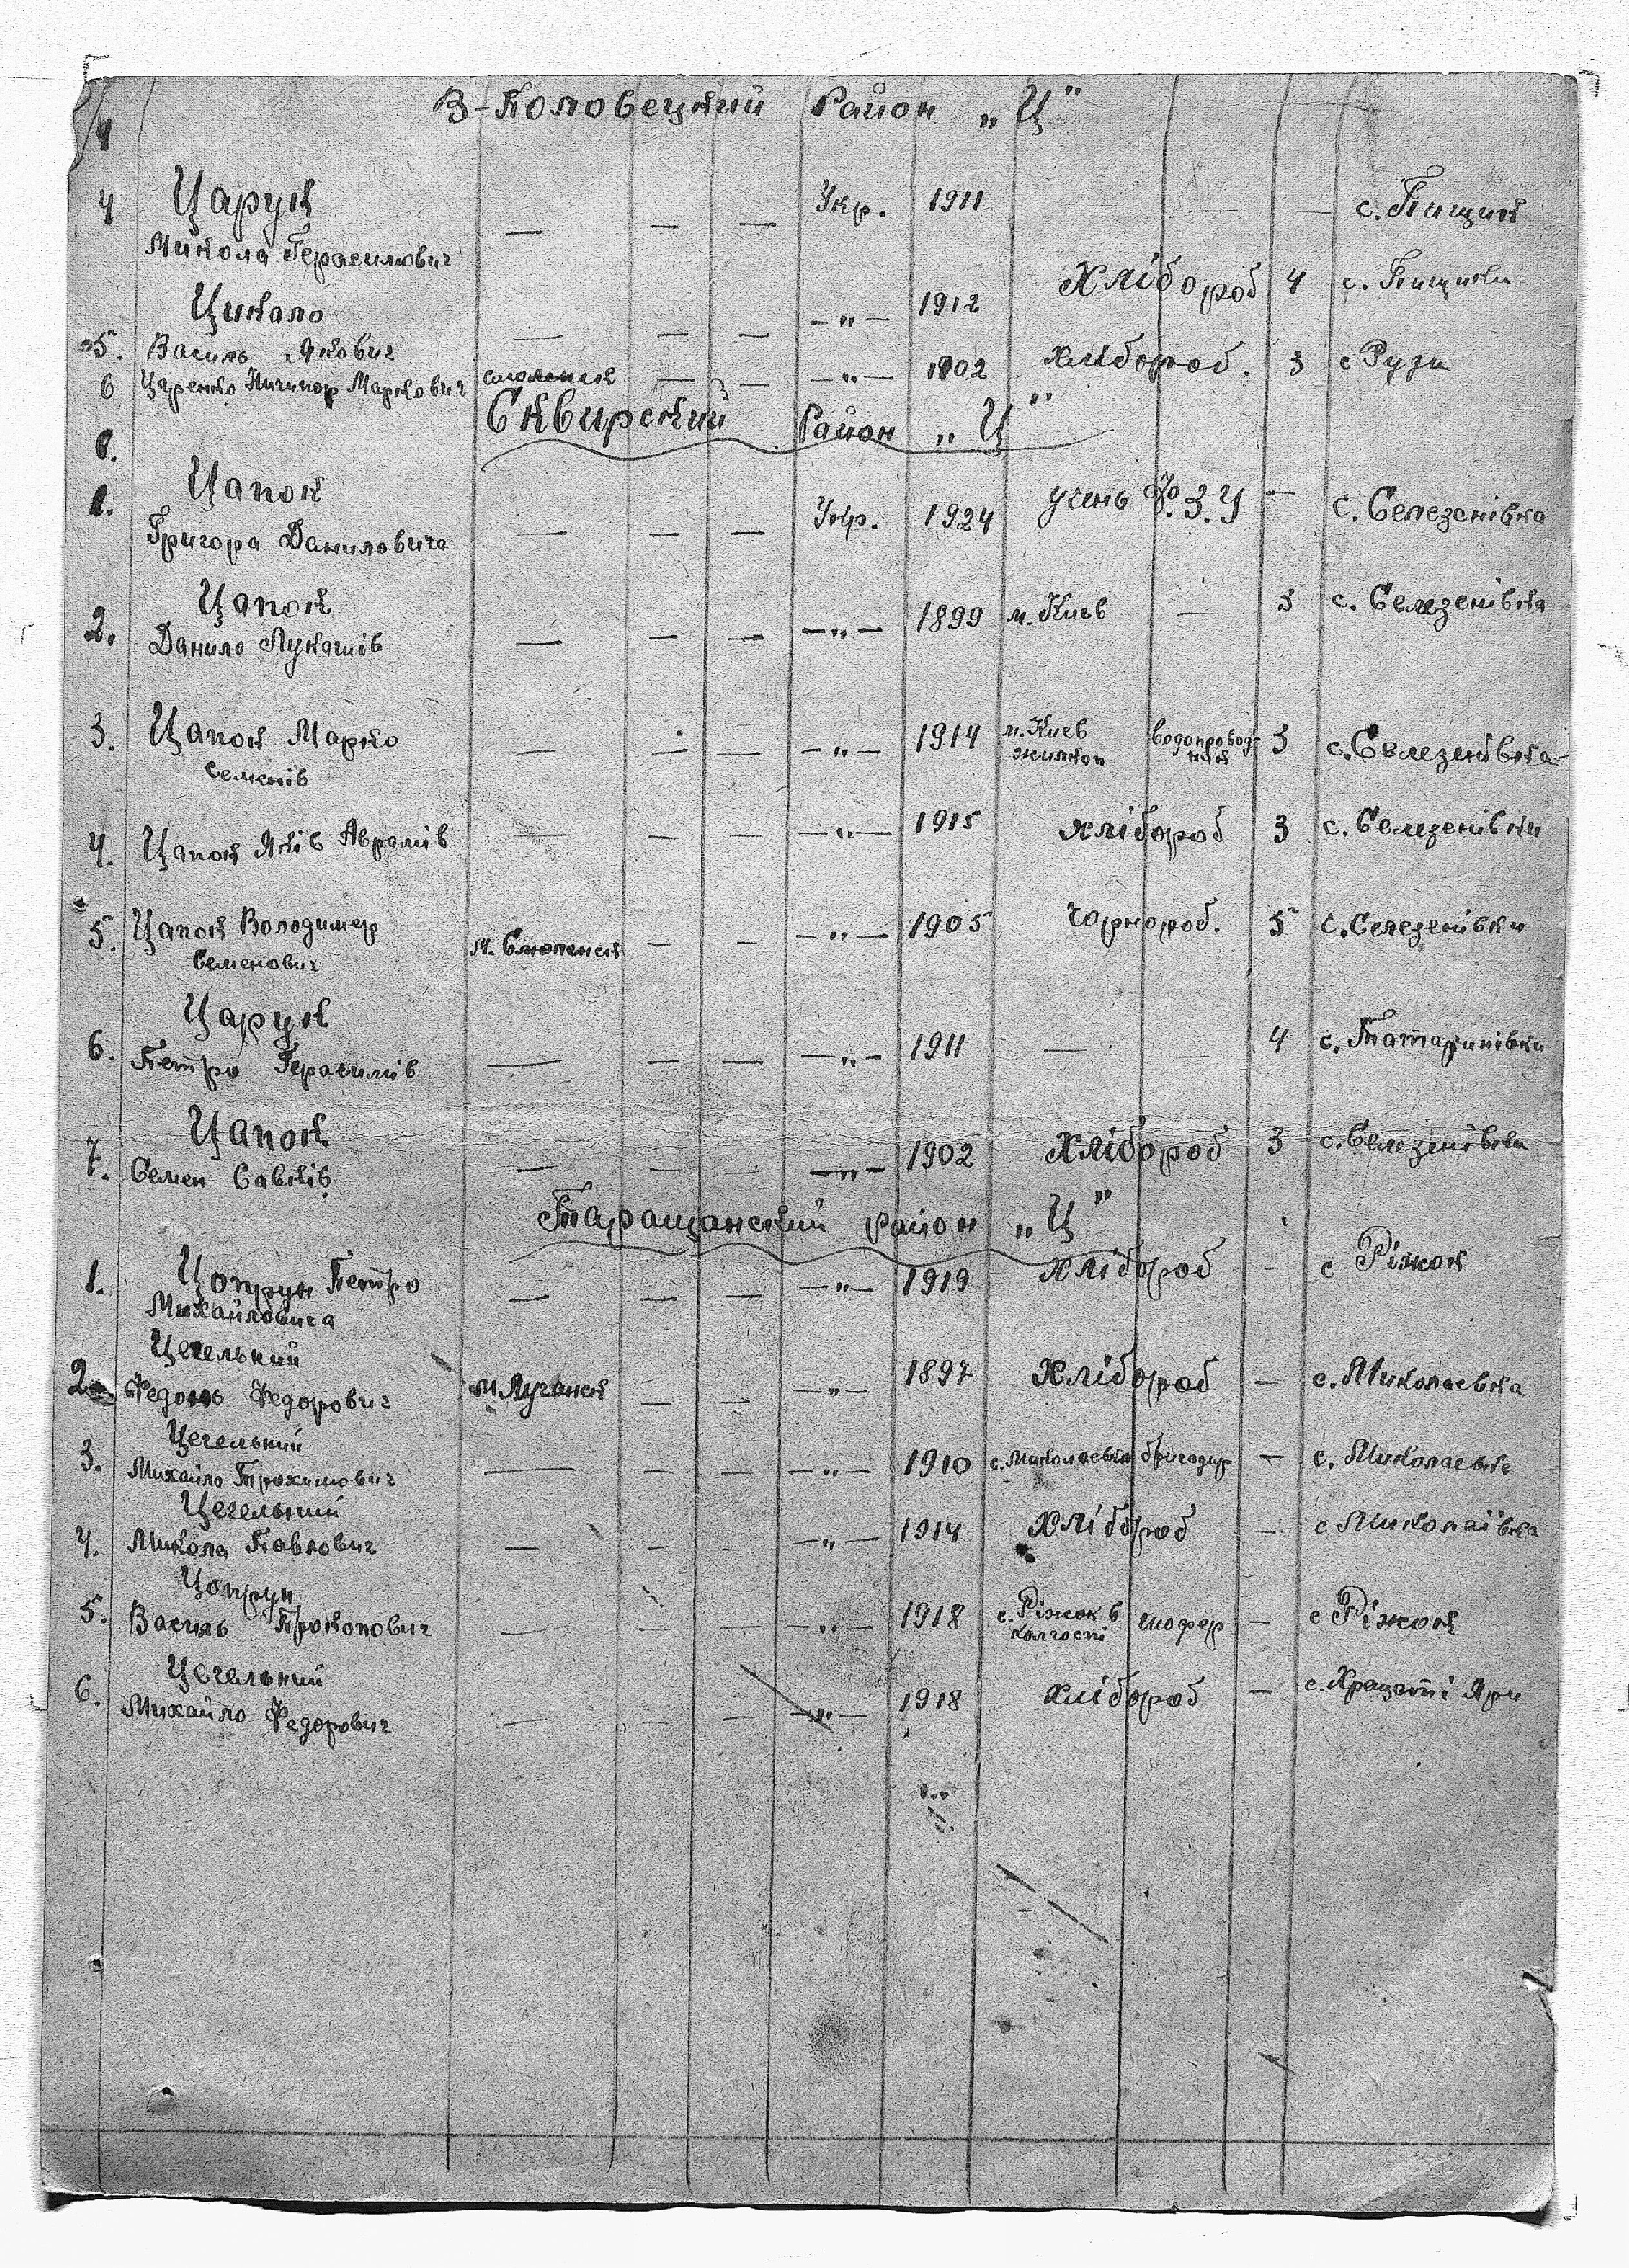 В-Половецкий Район „Ц"
4
4 Царук — — — Укр. 1911 — — — с. Пищик
Микола Герасимович
Цикало — — — —„— 1912 Хлібороб 4 с. Пищики
5. Василь Якович
6 Царенко Ничипор Маркович смоленск — — —„— 1902 хлібороб. 3 с Руди
Сквирский Район „Ц"
1.
1. Цапок — — — Укр. 1924 учень Ф.З.У — с. Селезенівка
Григора Даниловича
Цапок
2. Данило Лукашів — — — —„— 1899 м. Киев — 3 с. Селезенівка
3. Цапок Марко — — — —„— 1914 м. Киев водопровод- 3 с. Селезенівка
Семенів жилкоп ник
4. Цапок Яків Аврамів — — — —„— 1915 хлібороб 3 с. Селезенівки
5. Цапок Володимер м. Смоленск — — —„— 1905 чорнороб. 5 с. Селезенівки
Семенович
Царук
6. Петро Герасимів — — — —„— 1911 — 4 с. Татаринівки
Цапок
7. Семен Савків — — — —„— 1902 Хлібороб 3 с. Селезенівки
Таращанский район „Ц"
1. Цопрун Петро — — — —„— 1919 Хлібороб — с Ріжок
Михайловича
Цегельний
2. Федось Федорович м. Луганск — — —„— 1897 Хлібороб — с. Миколаевка
Цегельний
3. Михайло Трохимович — — — —„— 1910 с. Миколаевка бригадир — с. Миколаевка
Цегельний
4. Микола Павлович — — — —„— 1914 Хлібороб — с Миколаївка
Цопрун
5. Василь Прокопович — — — —„— 1918 с. Ріжок в шофер — с Ріжок
колгоспі
Цегельний
6. Михайло Федорович — — — —„— 1918 хлібороб — с. Хрещаті Яри